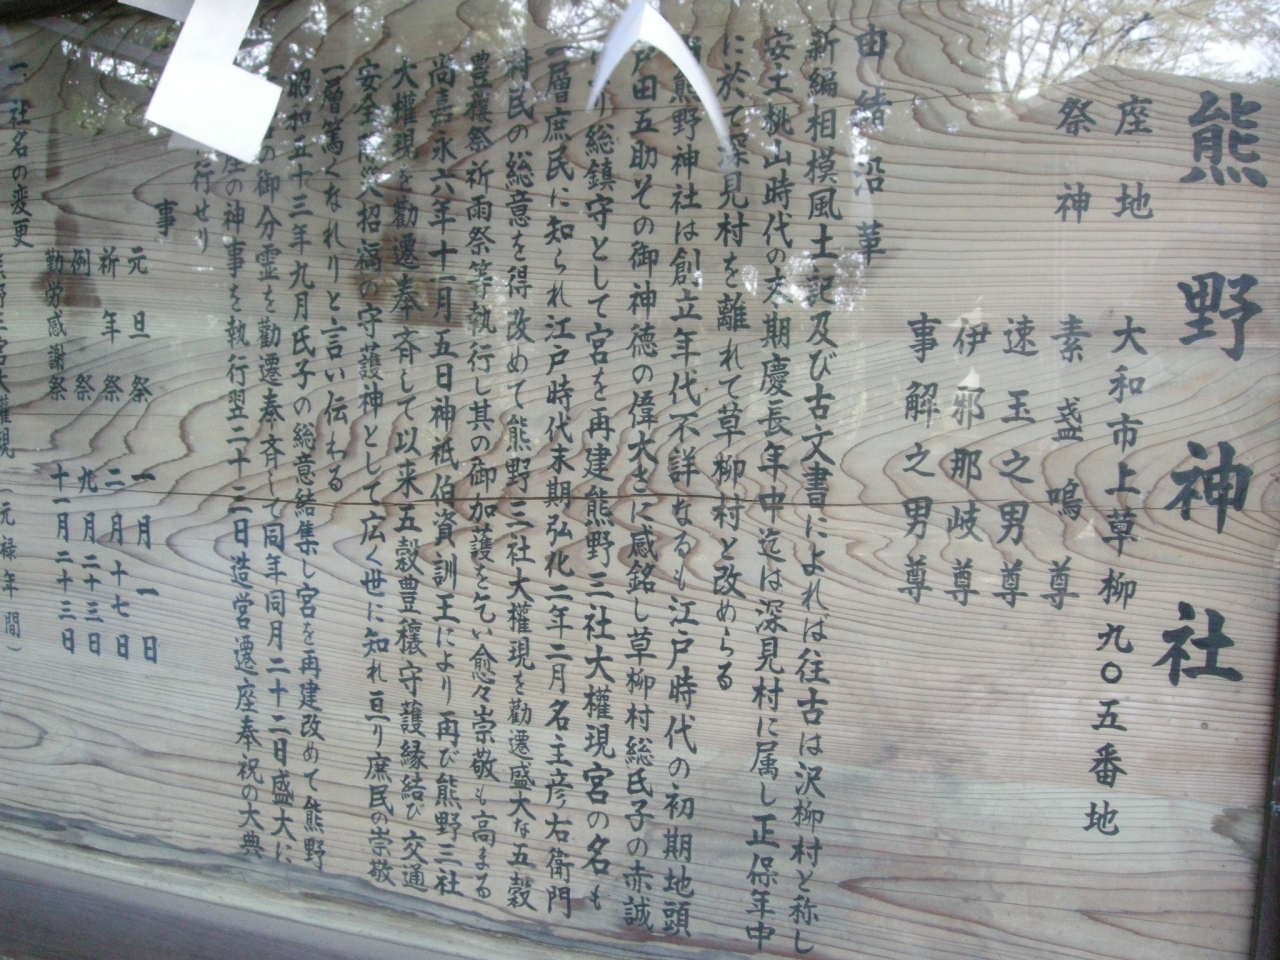 熊野神社
座地 大和市上草柳九〇五番地
祭神 素盞嗚尊
速玉之男尊
伊邪那岐尊
事解之男尊
由緒沿革
新編相模風土記及び古文書によれば往古は沢柳村と称し
安土桃山時代の末期慶長年中迄は深見村に属し正保年中
に於て深見村を離れて草柳村と改めらる
熊野神社は創立年代不詳なるも江戸時代の初期地頭
戸田五助その御神徳の偉大さに感銘し草柳村総氏子の赤誠
り総鎮守として宮を再建熊野三社大權現宮の名も
一層庶民に知られ江戸時代末期弘化二年二月名主彦右衛門
村民の総意を得改めて熊野三社大權現を勸遷盛大な五穀
豊穰祭祈雨祭等執行し其の御加護を乞い愈々崇敬も高まる
尚嘉永六年十一月五日神祇伯資訓王により再び熊野三社
大權現を勸遷奉斉して以来五穀豊穰守護縁結び交通
安全災招福の守護神として広く世に知れ亘り庶民の崇敬
一層篤くなれりと言い伝わる
昭和五十三年九月氏子の総意結集し宮を再建改めて熊野
の御分霊を勸遷奉斉して同年同月二十二日盛大に
座の神事を執行翌二十三日造営遷座奉祝の大典
行せり
事
元旦祭 一月一日
祈年祭 二月十七日
例祭 九月二十三日
勤労感謝祭 十一月二十三日
一、社名の変更 熊野三宮大權現（元禄年間）